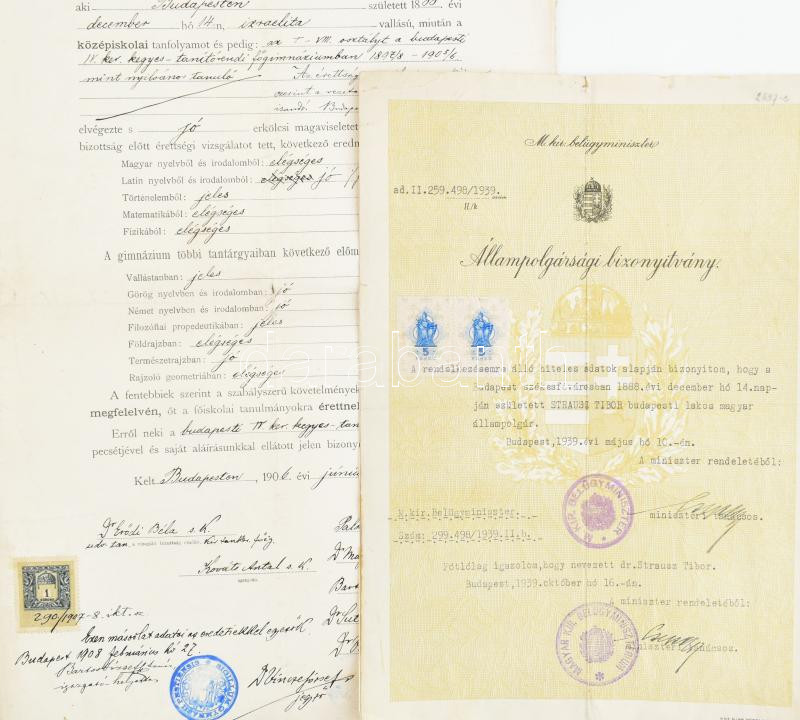 aki Budapesten született 18 évi
december hó 14-n, izraelita vallásu, miután a
középiskolai tanfolyamot és pedig: az I-VIII. osztályt a budapesti
IV. ker. kegyes-tanítórendi főgimnáziumban 1897/8 - 1905/6
mint nyilvános tanuló
elvégezte s jó erkölcsi magaviselet
bizottság előtt érettségi vizsgálatot tett, következő ered
Magyar nyelvből és irodalomból: elégséges
Latin nyelvből és irodalomból: elégséges jó
Történelemből: jeles
Matematikából: elégséges
Fizikából: elégséges
A gimnázium többi tantárgyaiban következő előm
Vallástanban: jeles
Görög nyelvben és irodalomban: jó
Német nyelvben és irodalomban: jó
Filozófiai propedeutikában: jeles
Földrajzban: elégséges
Természetrajzban: jó
Rajzoló geometriában: elégséges
A fentebbiek szerint a szabályszerű követelmények
megfelelvén, őt a főiskolai tanulmányokra érettnek
Erről neki a budapesti IV. ker. kegyes-tan
pecsétjével és saját aláírásunkkal ellátott jelen bizony
Kelt Budapesten, 1906 évi június
Dr Erődi Béla s. k.
Kováts Antal s. k.
1
290/1907-8. ikt. sz
Ezen másolat adatai az eredetiekkel egyezők.
Budapest 1908 februárius hó 27.
igazgató helyettes
Dr Vincze József
jegyző
M. kir. belügyminiszter
ad.II.259.498/1939. szám
II/k
Állampolgársági bizonyítvány.
5 5
A rendelkezésemre álló hiteles adatok alapján bizonyitom, hogy a
Budapest székesfővárosban 1888.évi december hó 14.nap-
ján született STRAUSZ TIBOR budapesti lakos magyar
állampolgár.
Budapest,1939.évi május hó 10.-én.
A miniszter rendeletéből:
M. KIR. BELÜGYMINISZTER
miniszteri tanácsos.
M.kir.Belügyminiszter.
Szám: 299.498/1939.II.h.
Pótlólag igazolom,hogy nevezett dr.Strausz Tibor.
Budapest,1939.október hó 16.-án.
A miniszter rendeletéből:
MAGYAR KIR. BELÜGYMINISZTÉRIUM
miniszteri tanácsos.
darabanth